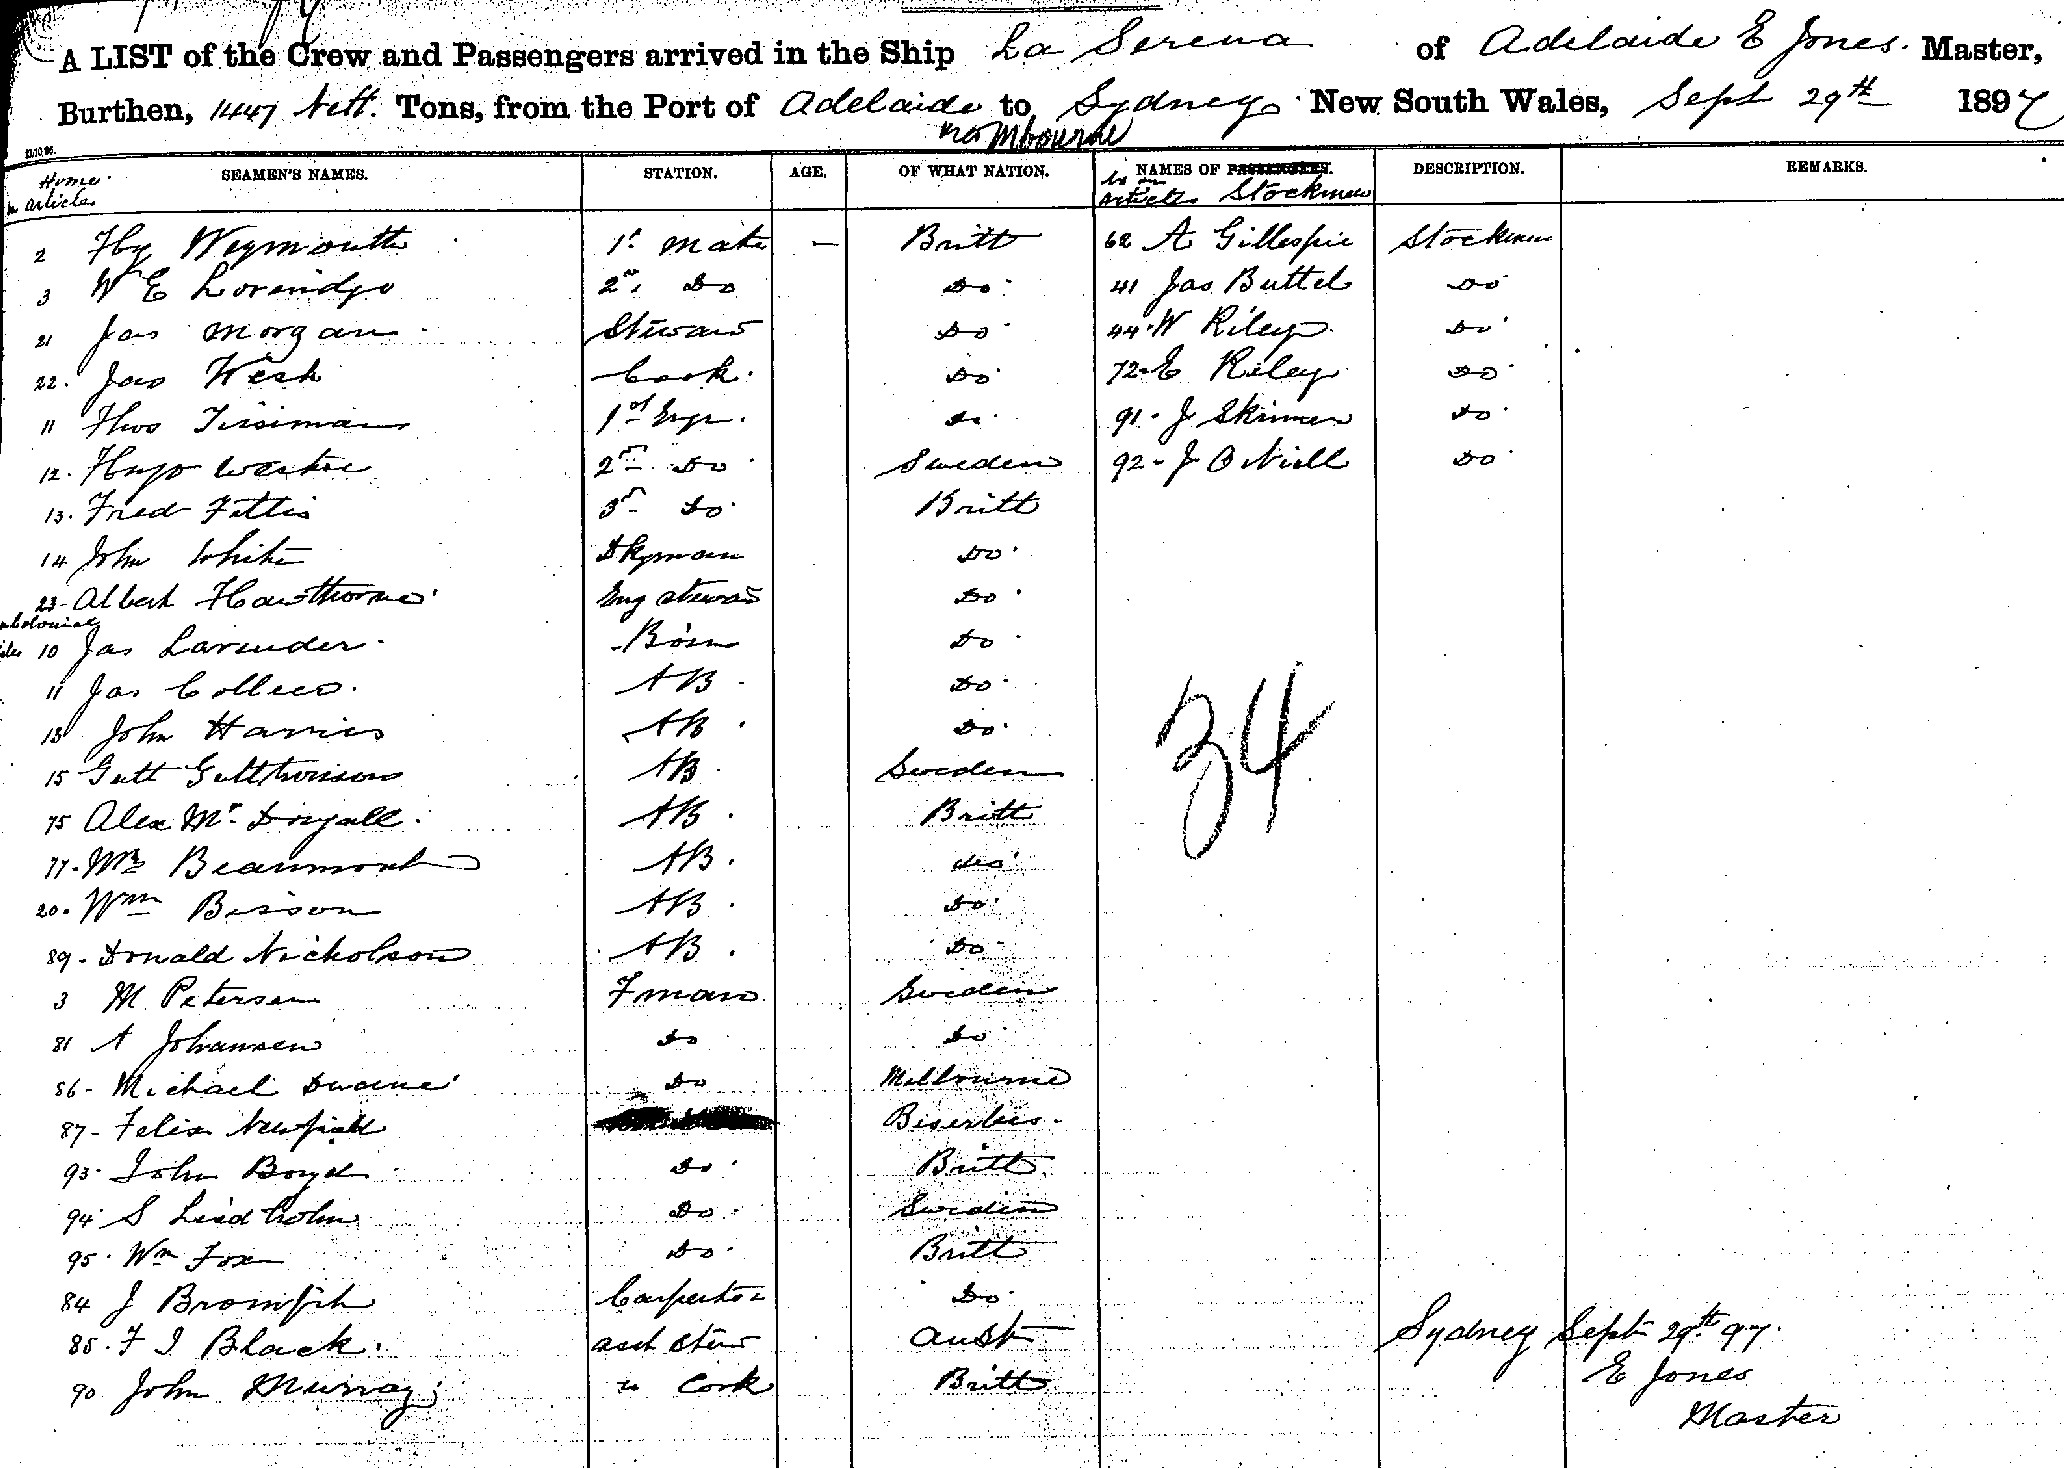 A LIST of the Crew and Passengers arrived in the Ship La Serena of Adelaide E Jones. Master,
Burthen, 1447 Nett. Tons, from the Port of Adelaide to Sydney New South Wales, Sept 29th 1897
Home articles SEAMEN'S NAMES. STATION. AGE. OF WHAT NATION. NAMES OF PASSENGERS. DESCRIPTION. REMARKS.
articles Stockmen
2 Hy Weymouth 1st Mate — Britt 62 A Gillespie Stockmen
3 W E Loveridge 2nd Do Do 41 Jas Buttel Do
21 Jas Morgan Steward Do 44 W Riley Do
22. Jas West Cook. Do 72 E Riley Do
11 Thos Tissiman 1st Engr. Do 91 - J Skinner Do
12. Hugo 2nd Do Sweden 92 - J O Niell Do
13. Fred Fettis 3rd Do Britt
14 John White Dkyman Do
23 - Albert Hawthorne Eng Steward Do
10 Jas Lavender Bosn Do
11 Jas Collees AB Do
13 John Harries AB Do
15 Gutt AB Sweden
75 Alex Mc Dougall AB Britt
77. Wm Beaumont AB do
20. Wm Bisson AB Do
89 - Donald Nicholson AB Do
3 M Petersen Fman Sweden
81 A Johansen Do Do
86 - Michael Dwane Do Melbourne
87 - Felix
93 John Boyd Do Britt
94 S Lindholm Do Sweden
95. Wm Fox Do Britt
84 J Carpenter Do
85. F J Black. asst Stew Aust
90 John Murray " Cook Britt
34
Sydney Sept 29th 97.
E Jones
Master